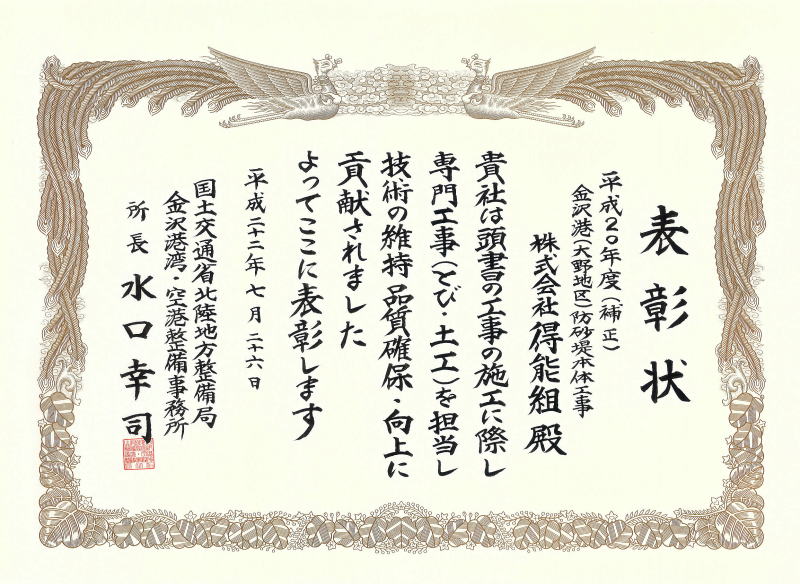 表彰状
平成20年度(補正)
金沢港(大野地区)防砂堤本体工事
株式会社得能組殿
貴社は頭書の工事の施工に際し
専門工事(とび・土工)を担当し
技術の維持品質確保・向上に
貢献されました
よってここに表彰します
平成二十二年七月二十六日
国土交通省北陸地方整備局
金沢港湾・空港整備事務所
所長水口幸司